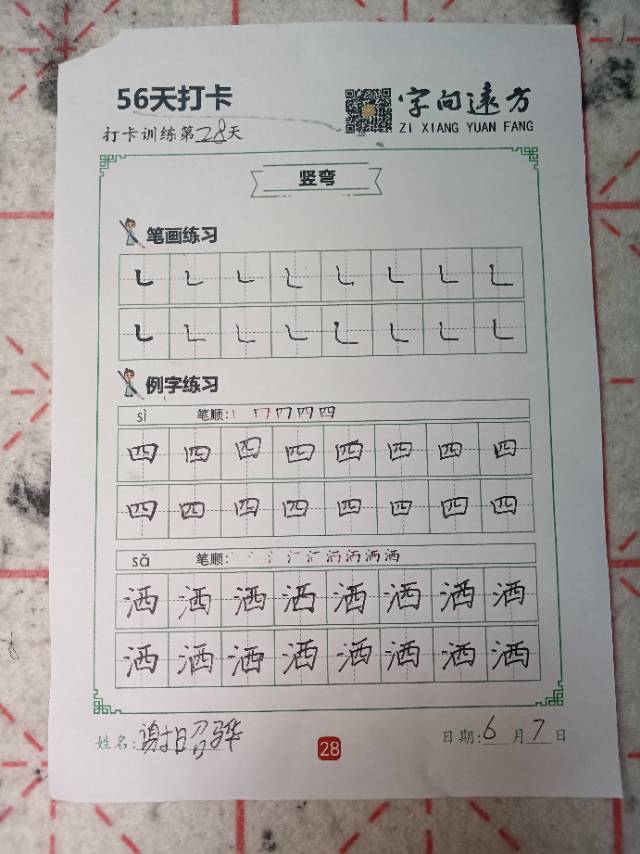 56天打卡
字向远方
打卡训练第28天
ZI XIANG YUAN FANG
竖弯
笔画练习
例字练习
sì 笔顺:
四 四 四 四 四 四 四 四
四 四 四 四 四 四 四 四
sǎ 笔顺:
洒 洒 洒 洒 洒 洒 洒 洒
洒 洒 洒 洒 洒 洒 洒 洒
姓名: 谢昭骅 28 日期: 6月7日